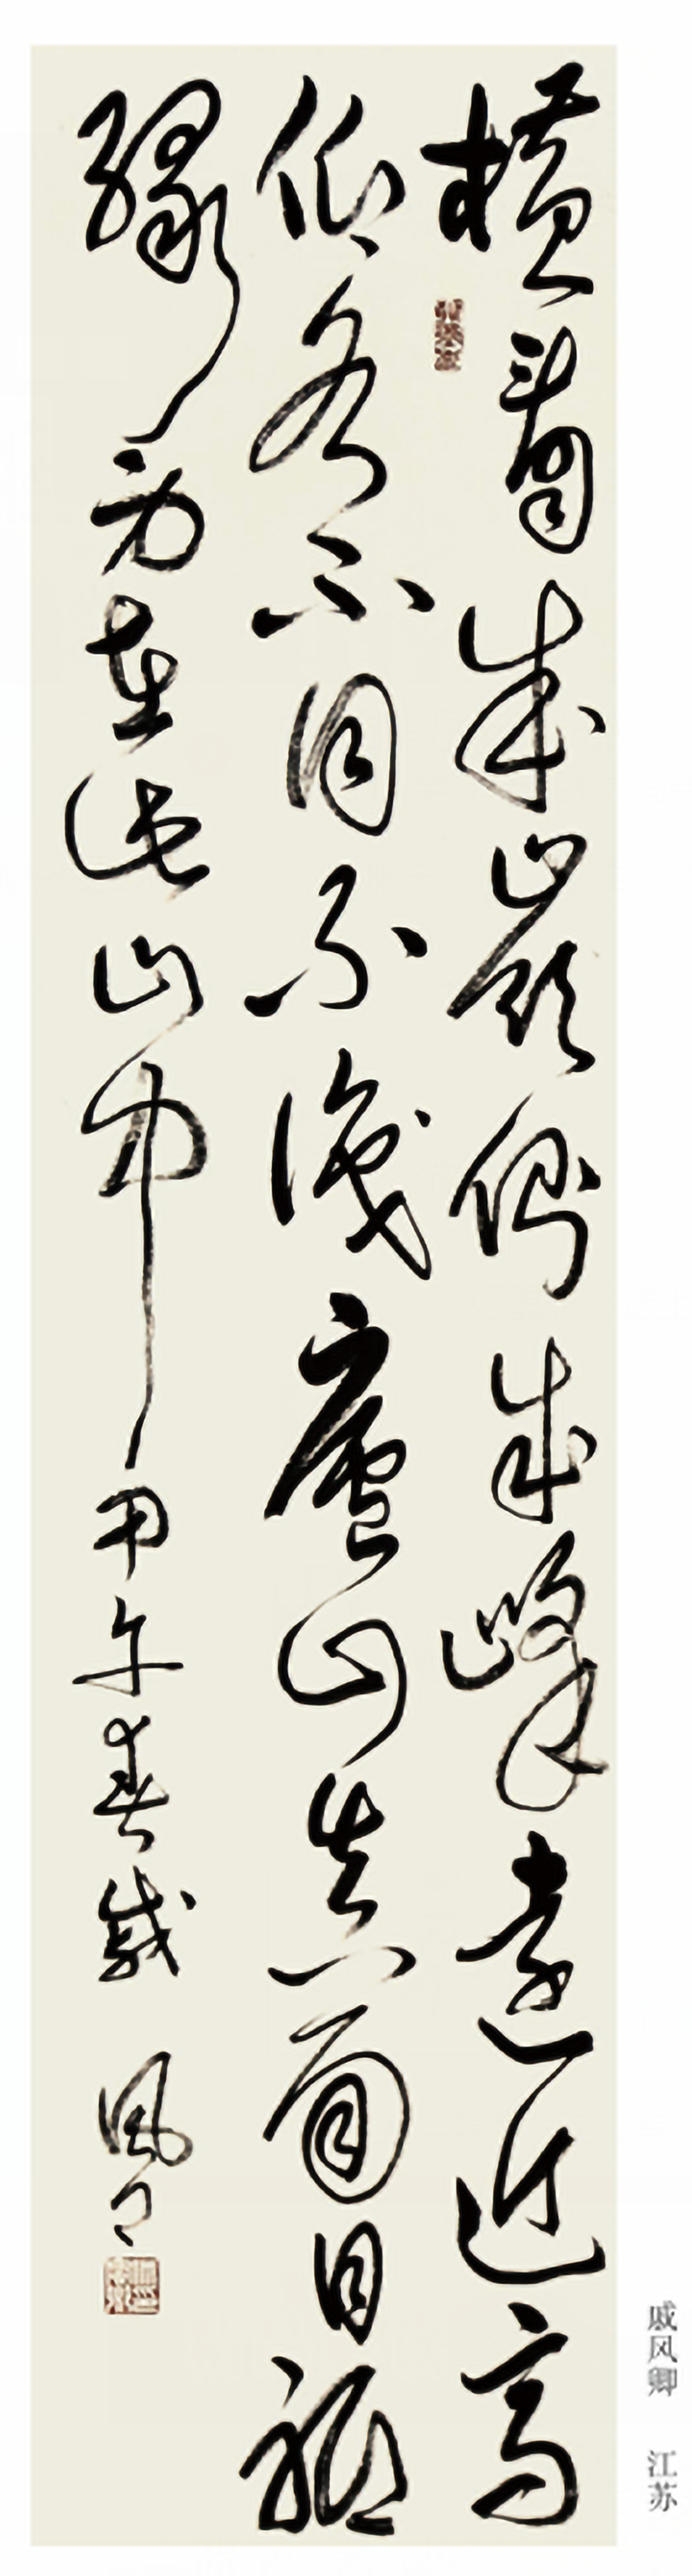 横看成岭侧成峰远近高
低各不同不识庐山真面目祗
缘身在此山中甲午春戚风卿
戚风卿 江苏